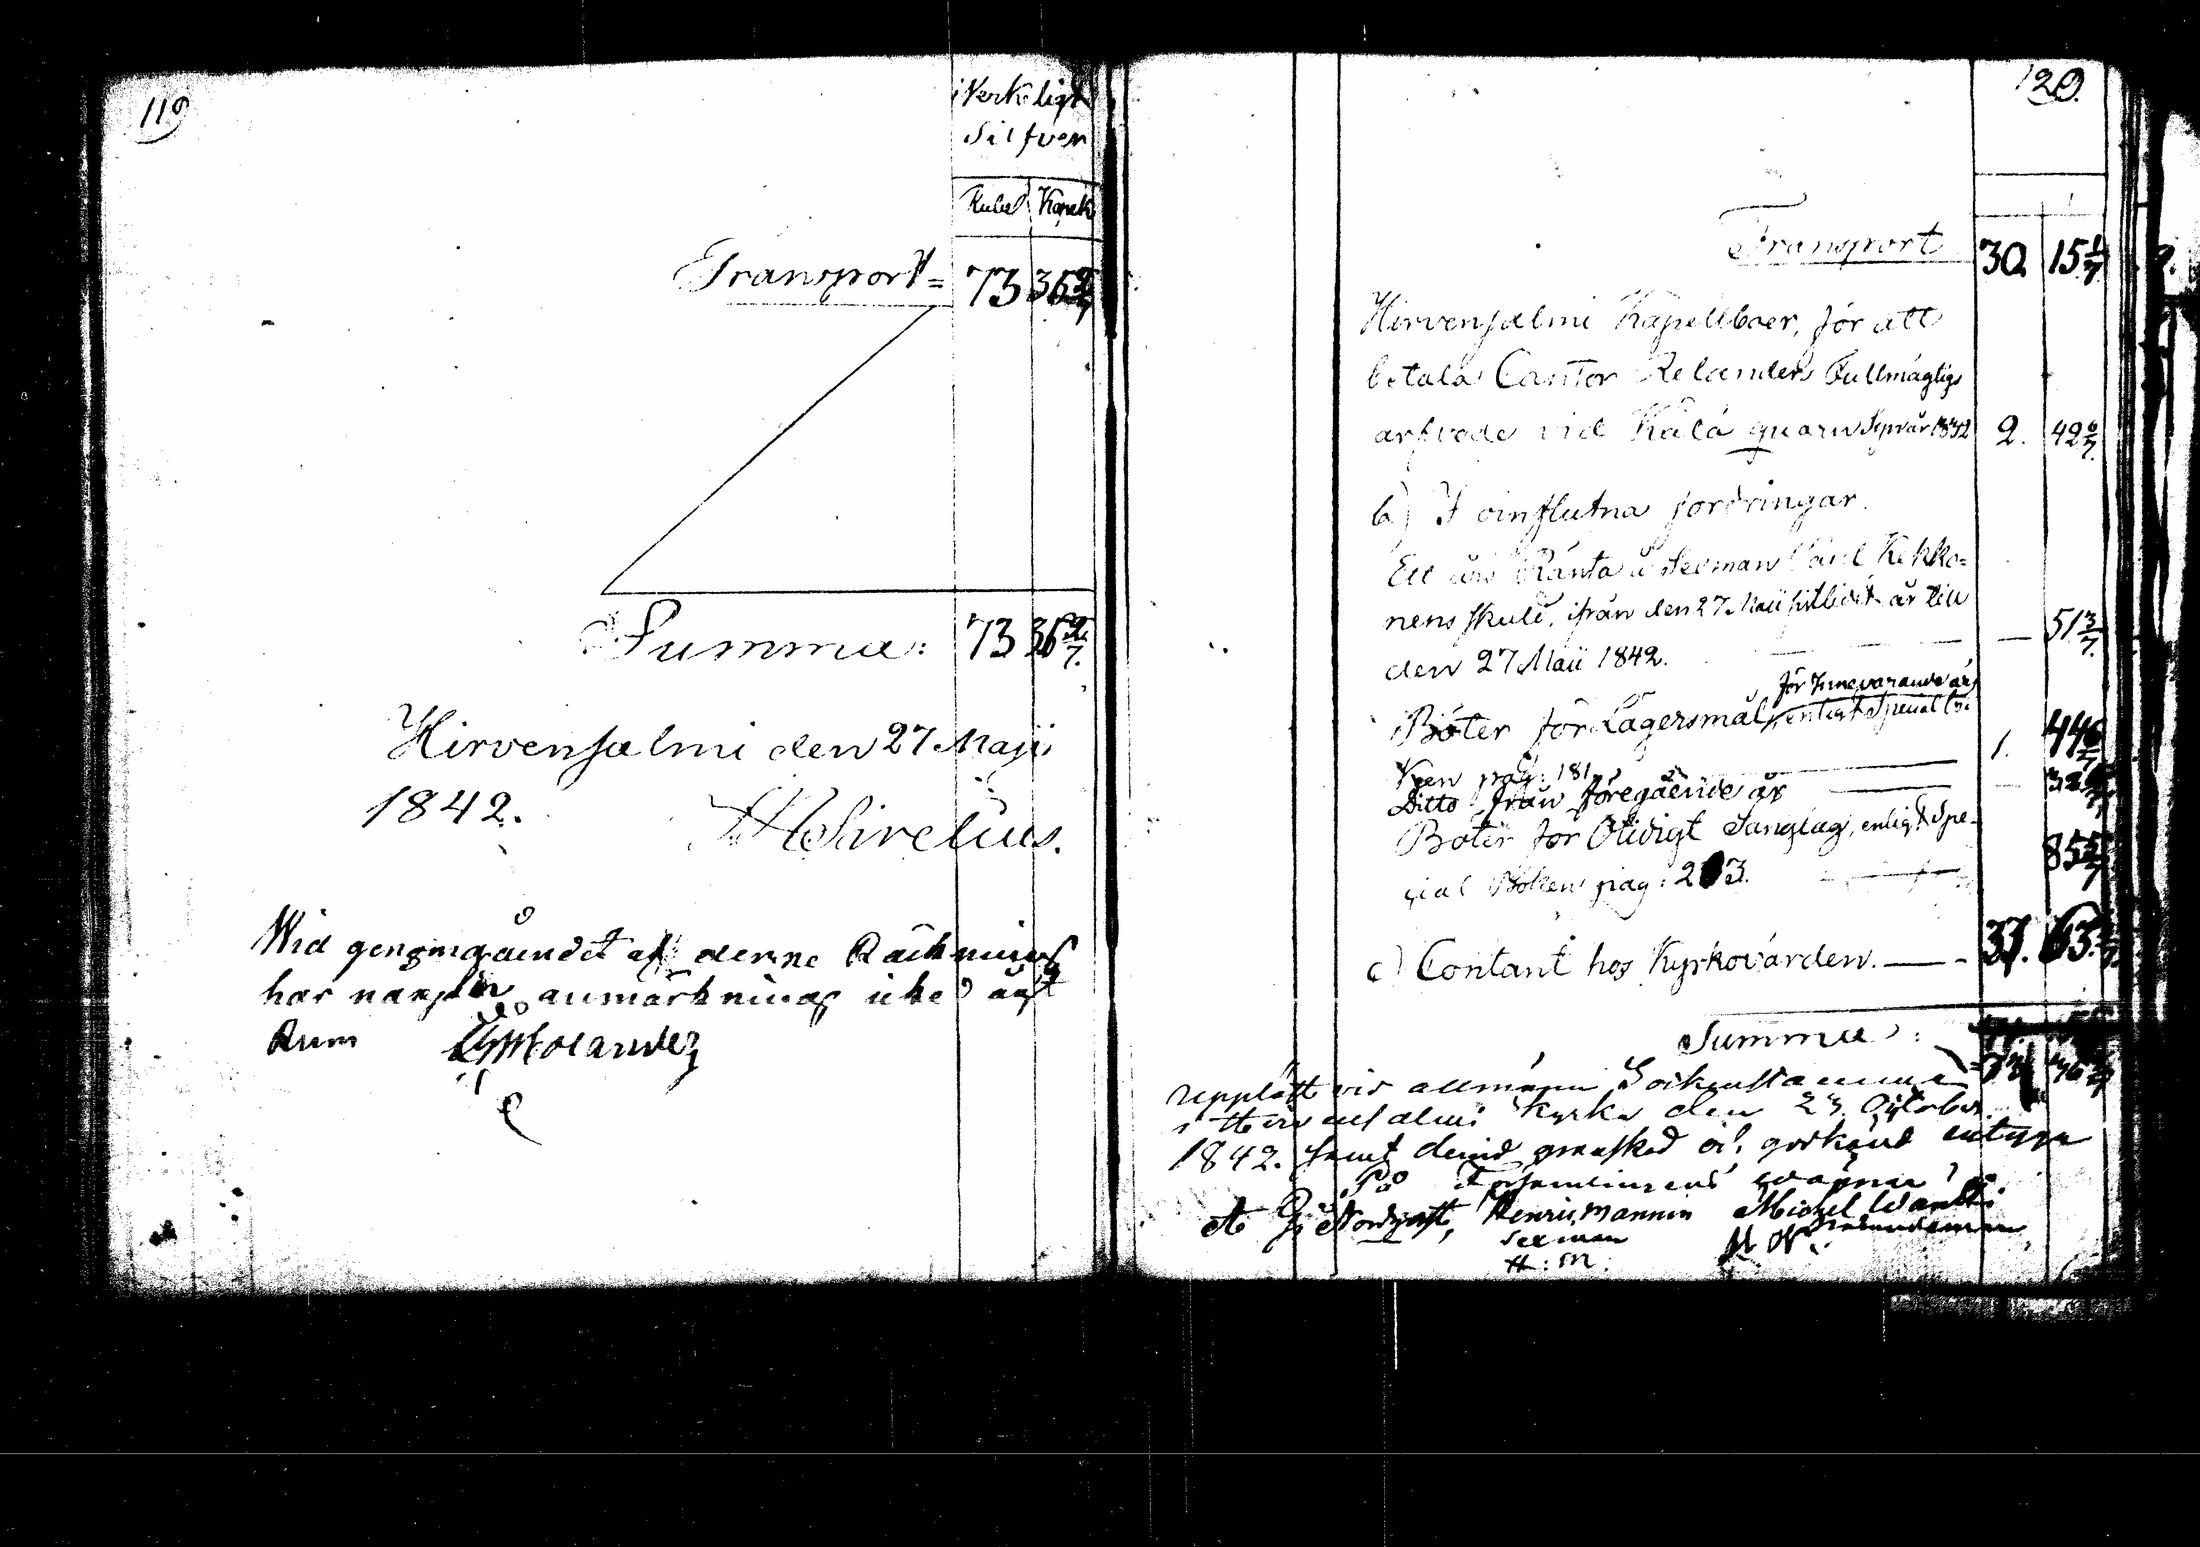 119
Verkeligt
Silfver
Rubel Kopek
Transport = 73 36 2/7
Summa: 73 36 2/7.
Hirvensalmi den 27 Maji
1842.
Sirelius.
Wid genomgåendet af denne Räkning
har någon anmärkning icke ägt
Rum
120.
Transport 30 15 1/7.
Hirvensalmi Kapellboer, för att
betala Cantor Relanders Fullmägtigs
arfvode vid Kälä quarn Syn år 1832 2. 42 6/7.
b) I oinflutna fordringar.
Ett års Ränta å Sexman Carl Kekko=
nens skuld, ifrån den 27 Maji sistledit år till
den 27 Maii 1842. — — 51 3/7.
för Innevarande år
Böter för Lägersmål, enligt Special Bo-
ken pag: 181 — 1. 44
Ditto från föregående år —
Böter för Otidigt Sänglag, enligt Spe-
cial Boken pag: 203. — 85 5/7
c) Contant hos Kyrkovärden. — 37. 63.
Summa:
Uppläst vid allmänn Sockenstämma
i Hirvensalmi Kyrka den 23 October
1842. samt dervid granskad och godkänd
På Församlingens vägnar
Nordqvist, Henric Mannin Michel
Sexman
H: M.